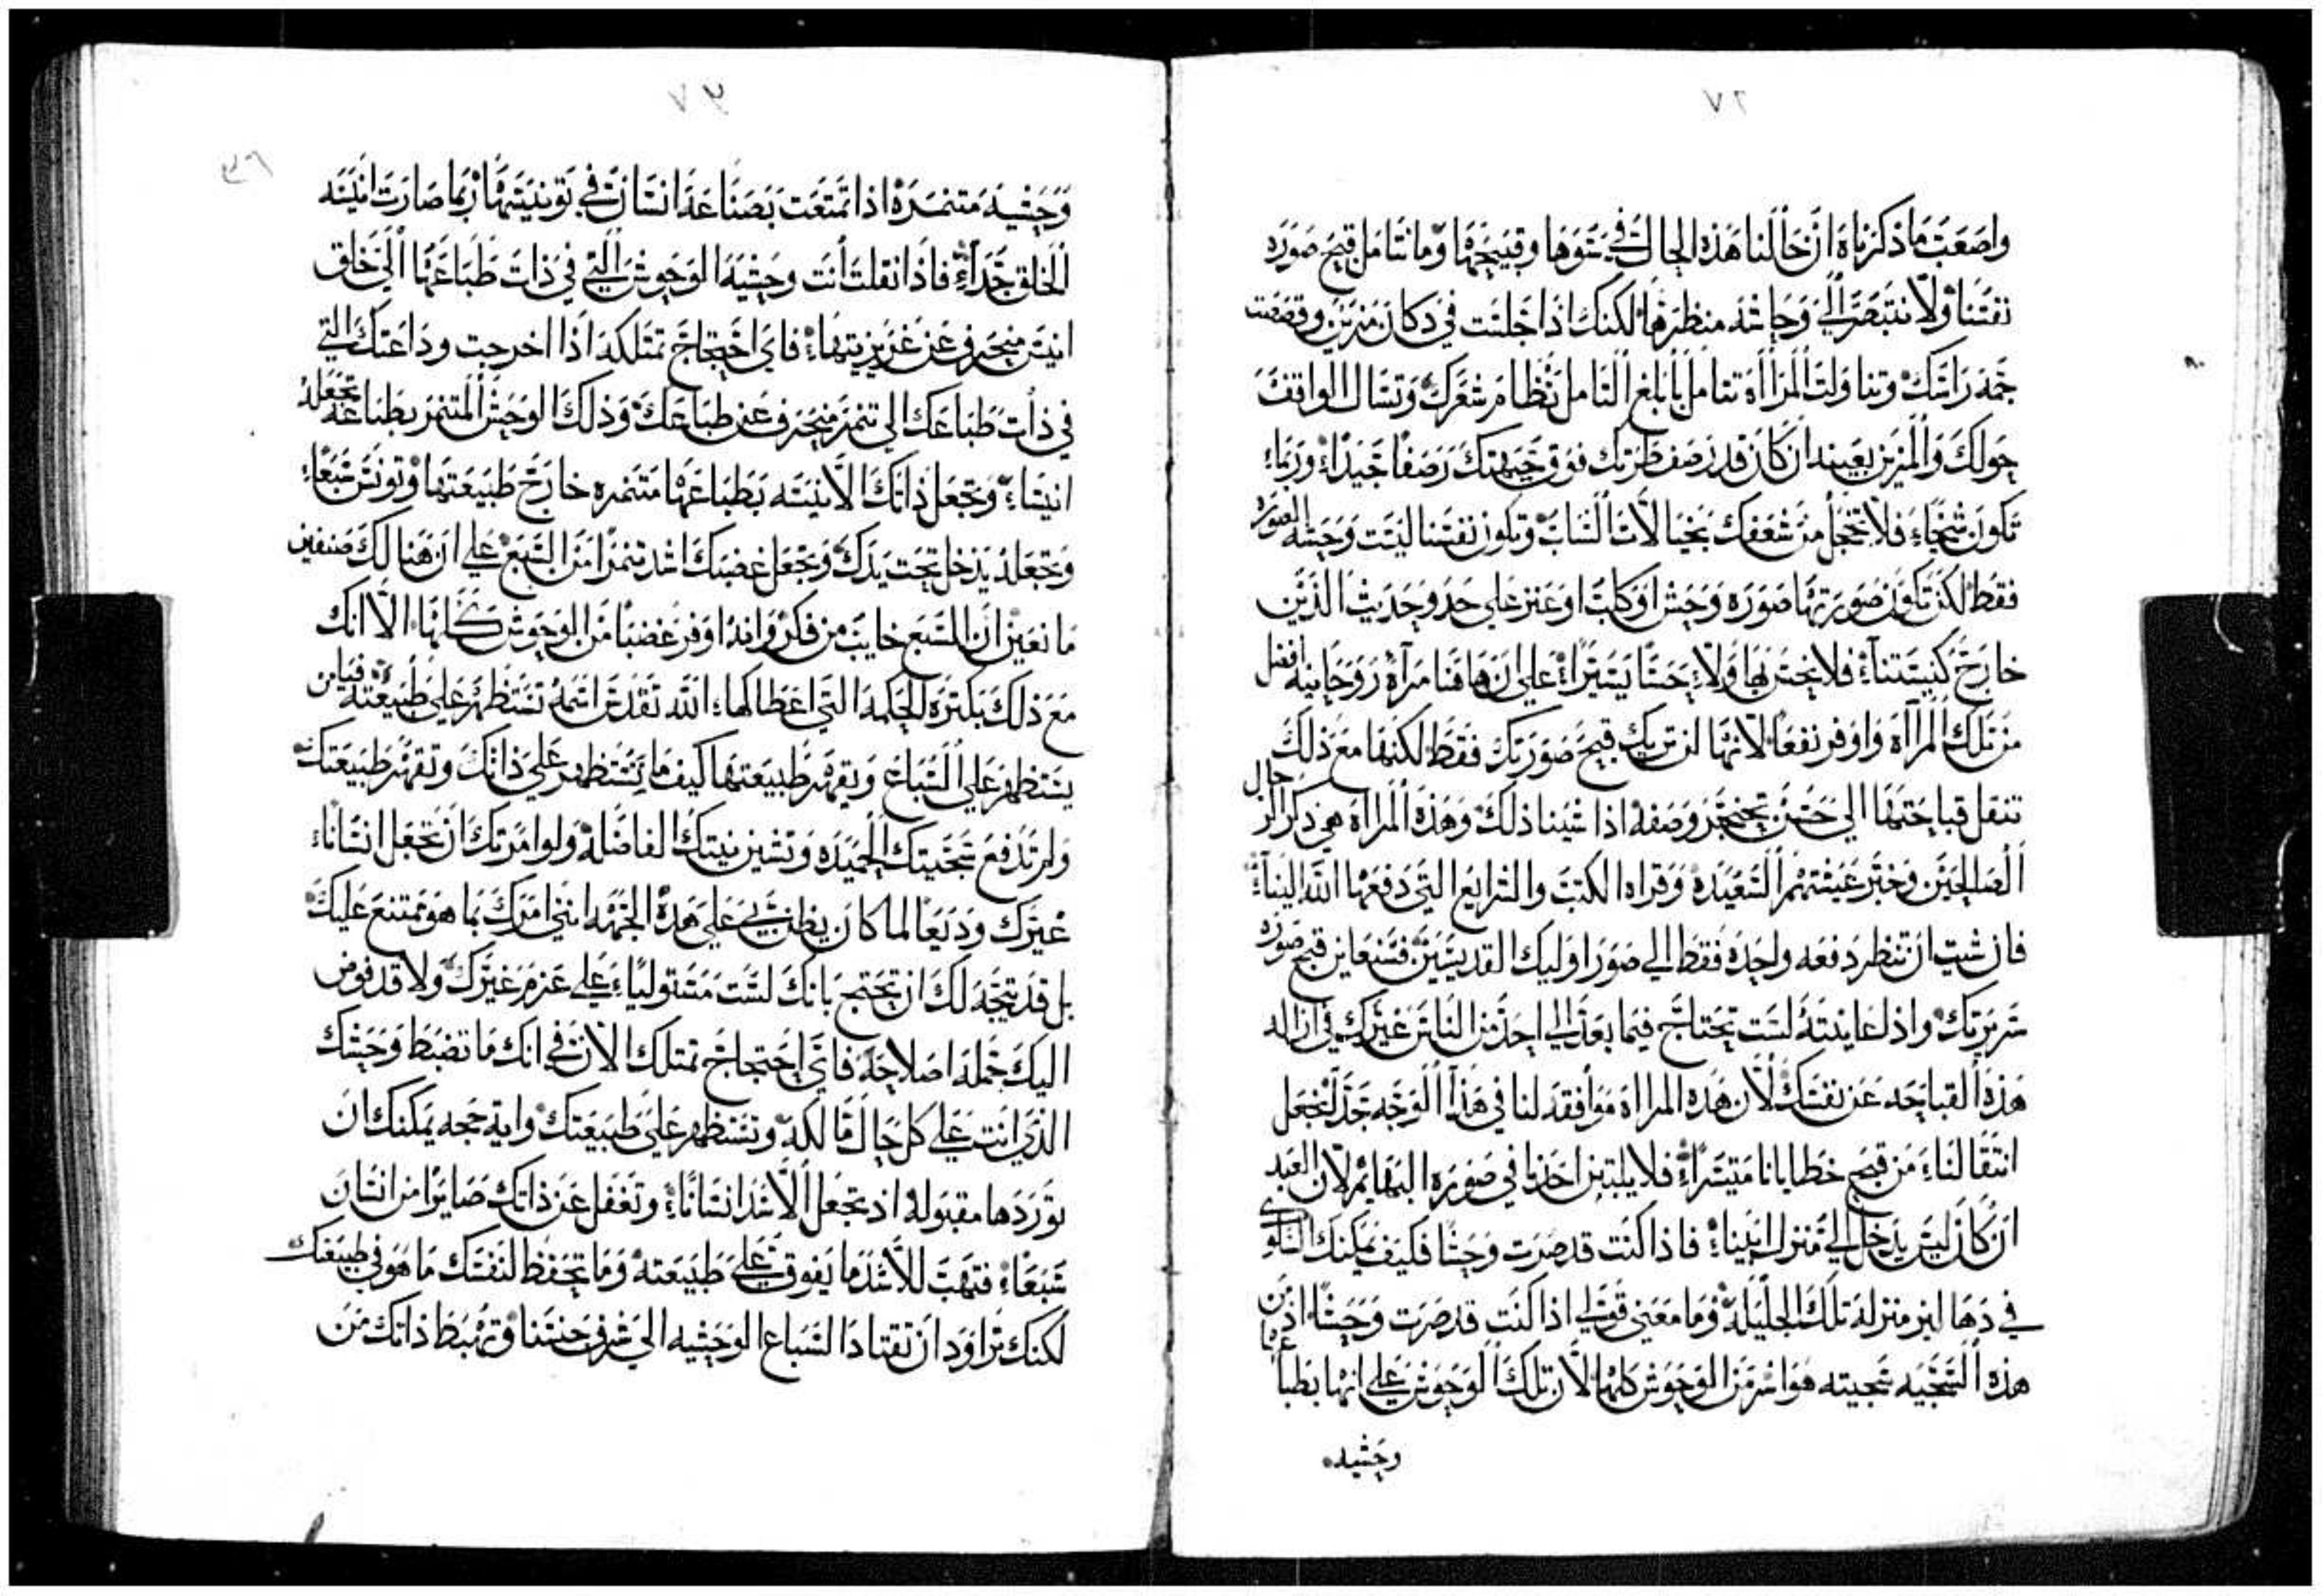 ٧٦
واصعب ما ذكرناه ان حالنا هذه الحال في سوها وقبيحها وما نتامل قبح صوره
نفسنا ولا نتبصر الي وحاشه منظرها لكنك اذا جلست في دكان مزين وقصصت
جمه راسك وتناولت المرااه تتامل بابلغ التامل نظام شعرك وتسال الواقف
حولك والمزين بعينه ان كان قد رصف طرتك فوق جبهتك رصفا جيدا وربما
تكون شيخا فلا تخجل من شغفك بخيالات الشباب وتكون نفسنا ليست وحشه الصوره
فقط لكن تكون صورتها صوره وحش او كلب او عنز علي حد وحديث الذين
خارج كنيستنا فلا نحس بها ولا حسا يسيرا علي ان هاهنا مرآه روحانيه افضل
من تلك المراآه واوفر نفعا لانها لن تريك قبح صورتك فقط لكنها مع ذلك
تنقل قباحتها الي حسن تعجز وصفه اذا شينا ذلك وهذه المرااه هي ذكر الرجال
الصالحين وخبر عيشتهم السعيده وقراه الكتب والشرايع التي دفعها الله الينا
فان شيت ان تنظر دفعه واحده فقط الي صور اوليك القديسين فستعاين قبح صوره
سريرتك واذا عاينته لست تحتاج فيما بعد الي احد من الناس غيرك في ازاله
هذه القباحه عن نفسك لان هذه المرااه موافقه لنا في هذا الوجه جدا لتجعل
انتقالنا من قبح خطايانا متيسرا فلا يلبثن احدنا في صوره البهايم لان العبد
ان كان ليس يدخل الي منزل ابينا فاذا كنت قد صرت وحشا فكيف يمكنك السلوك
في دهاليز منزله تلك الجليله وما معني قولي اذا كنت قد صرت وحشا اذ من
هذه السجيه سجيته هو اشر من الوحوش كلها لان تلك الوحوش علي انها بطباعها
وحشيه
٧٧
وحشيه متنمره اذا تمتعت بصناعه انسان في تونيسها ربما صارت انيسه
الخلق جدا فاذا نقلت انت وحشيه الوحوش التي في ذات طباعها الي خلق
انيس منحرف عن غريزيتها فاي احتجاج تمتلكه اذا اخرجت وداعتك التي
في ذات طباعك الي تنمر منحرف عن طباعك وذلك الوحش المتنمر بطباعه تجعله
انيسا وتجعل ذاتك الانيسه بطباعها متنمره خارج طبيعتها وتونس سبعا
وتجعله يدخل تحت يدك وتجعل غضبك اشد تنمرا من السبع علي ان هنالك صنفين
مانعين ان السبع خايب من فكر وانه اوفر غضبا من الوحوش كلها الا انك
مع ذلك بكثره الحكمه التي اعطاكها الله تقدس اسمه تستظهر علي طبيعته فيا من
يستظهر علي السباع ويقهر طبيعتها كيف ما تستظهر علي ذاتك وتقهر طبيعتك
ولم تدفع سجيتك الحميده وتشين نيتك الفاضله ولو امرتك ان تجعل انسانا
غيرك وديعا لما كان يظن بي علي هذه الجهه انني امرك بما هو ممتنع عليك
بل قد يتجه لك ان تحتج بانك لست مستوليا علي عزم غيرك ولا قد فوض
اليك جمله اصلاحه فاي احتجاج تمتلك الان في انك ما تضبط وحشك
الذي انت علي كل حال مالكه وتستظهر علي طبيعتك وايه حجه يمكنك ان
توردها مقبوله اذ تجعل الاسد انسانا وتغفل عن ذاتك صايرا من انسان
سبعا فتهب للاسد ما يفوق علي طبيعته وما تحفظ لنفسك ما هو في طبيعتك
لكنك تراود ان تقتاد السباع الوحشيه الي شرف جنسنا وتهبط ذاتك من